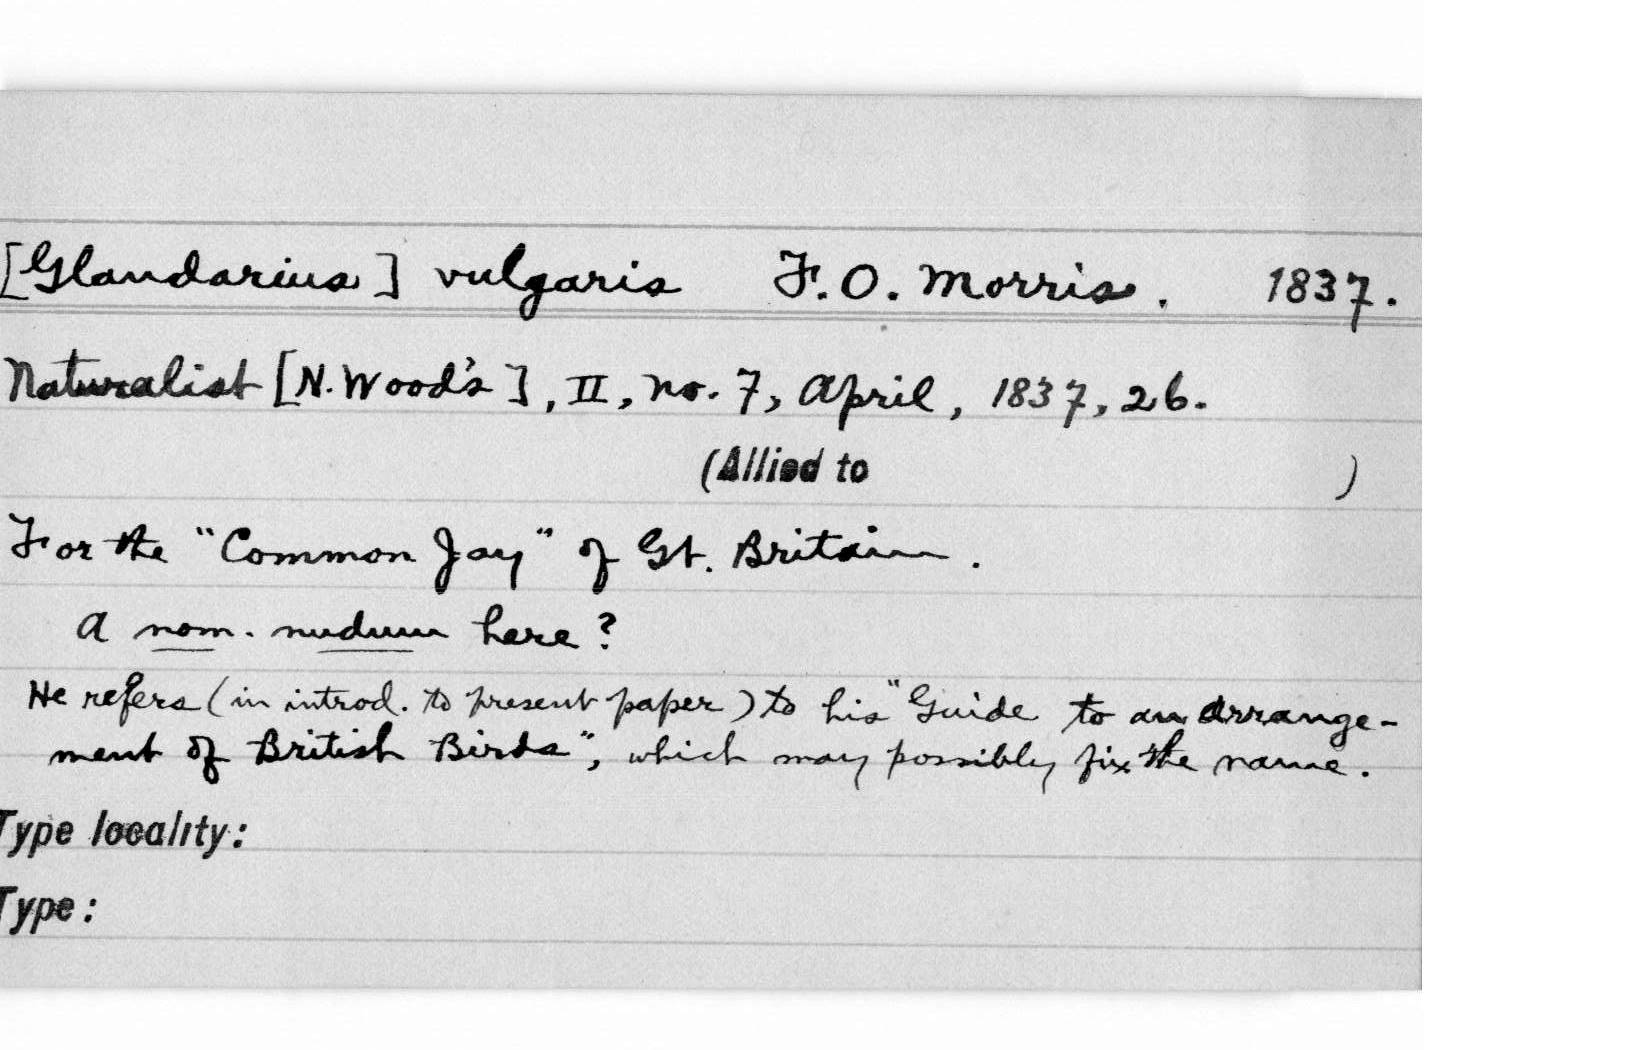 [Glandarius] vulgaris F.O. Morris. 1837.
Naturalist [N. Wood's], II, no. 7, April, 1837, 26.
(Allied to )
For the "Common Jay" of Gt. Britain.
A nom. nudum here?
He refers (in introd. to present paper) to his "Guide to an Arrange-
ment of British Birds", which may possibly fix the name.
Type locality:
Type: